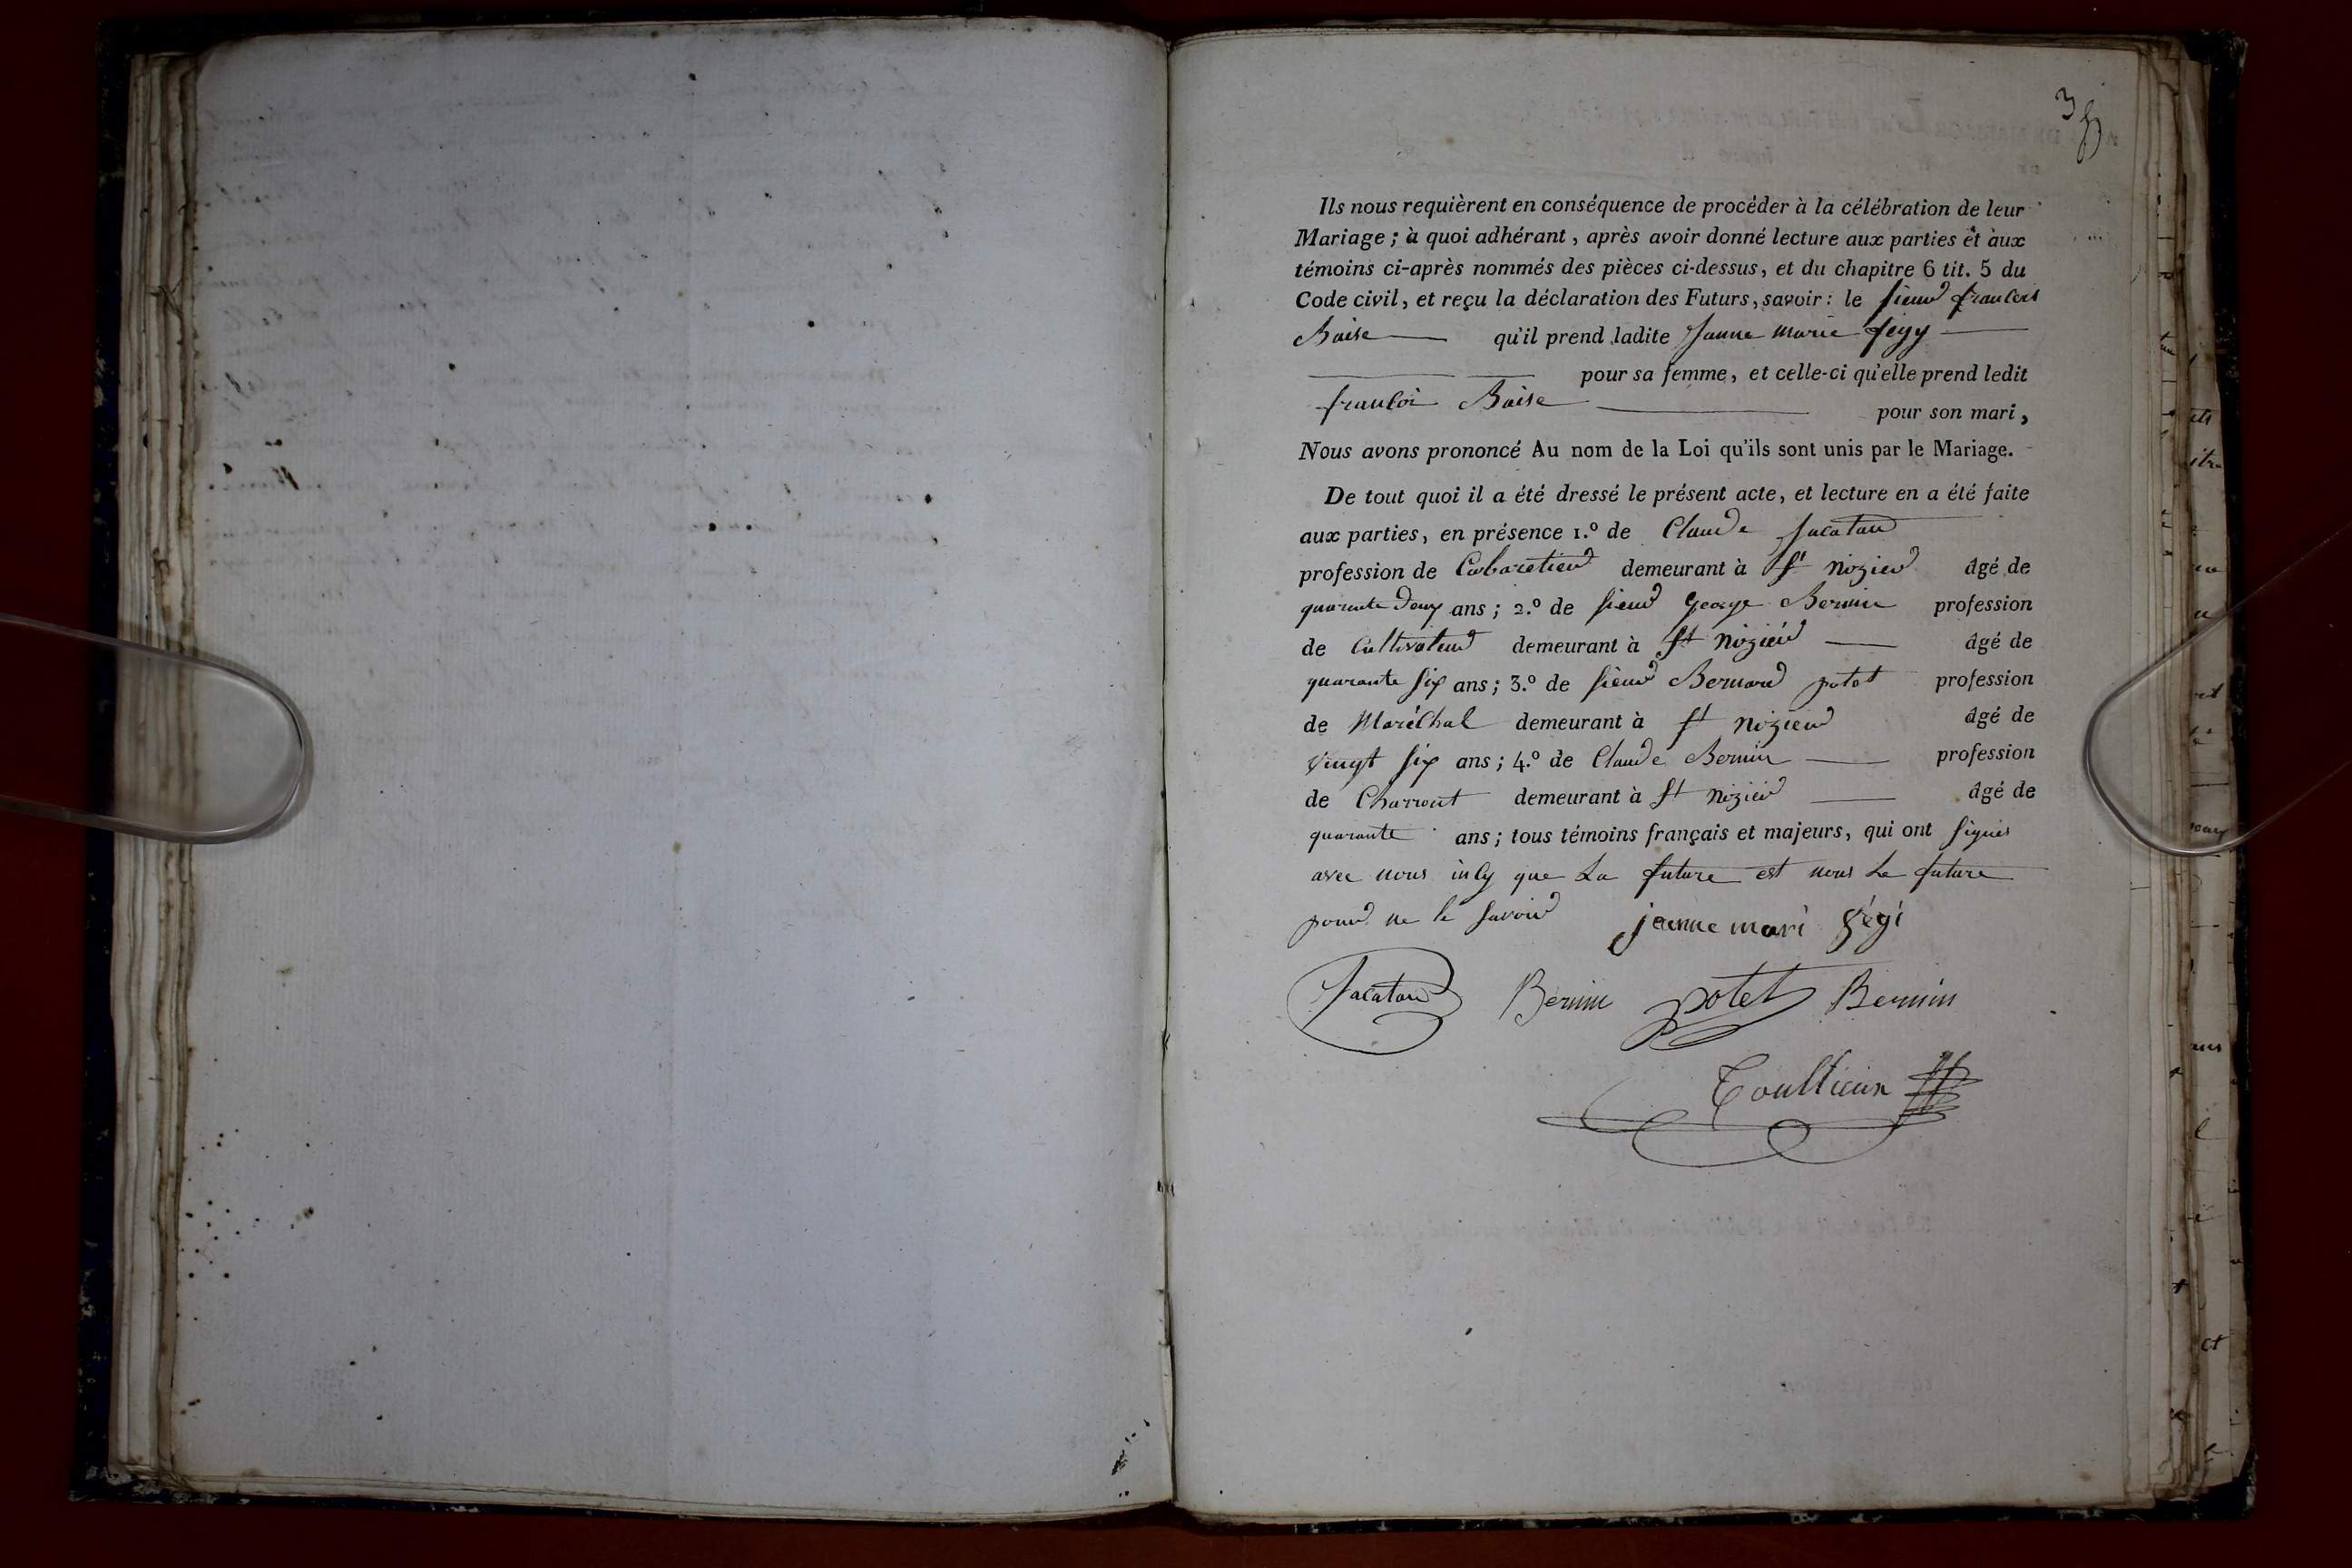 35
Ils nous requièrent en conséquence de procéder à la célébration de leur
Mariage ; à quoi adhérant, après avoir donné lecture aux parties et aux
témoins ci-après nommés des pièces ci-dessus, et du chapitre 6 tit. 5 du
Code civil, et reçu la déclaration des Futurs, savoir : le sieur francois
Baise qu'il prend ladite Janne marie fegy
pour sa femme, et celle-ci qu'elle prend ledit
francoi Baise pour son mari,
Nous avons prononcé Au nom de la Loi qu'ils sont unis par le Mariage.
De tout quoi il a été dressé le présent acte, et lecture en a été faite
aux parties, en présence 1.º de Claude Jacatau
profession de Cabaretier demeurant à St nizier âgé de
quarante deux ans ; 2.º de sieur george Bernin profession
de Cultivateur demeurant à St nizier âgé de
quarante six ans ; 3.º de sieur Bernard potet profession
de Maréchal demeurant à St nizier âgé de
vingt six ans ; 4.º de Claude Bernin profession
de Charront demeurant à St nizier âgé de
quarante ans ; tous témoins français et majeurs, qui ont signés
avec nous incy que La future est nous Le future
pour ne le savoir jeanne mari fégi
Jacatau Bernin potet Bernin